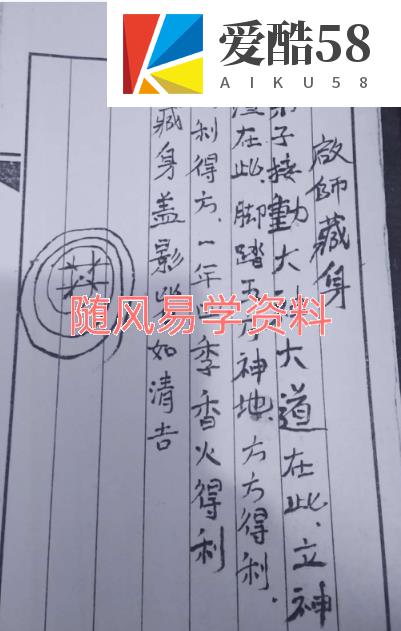 爱酷58
AIKU58
藏身
弟子接動大 大道在此、立神
在此、脚踏五方神地、方方得利、
利得方、一年四季香火得利
藏身盖影 如清吉
随风易学资料